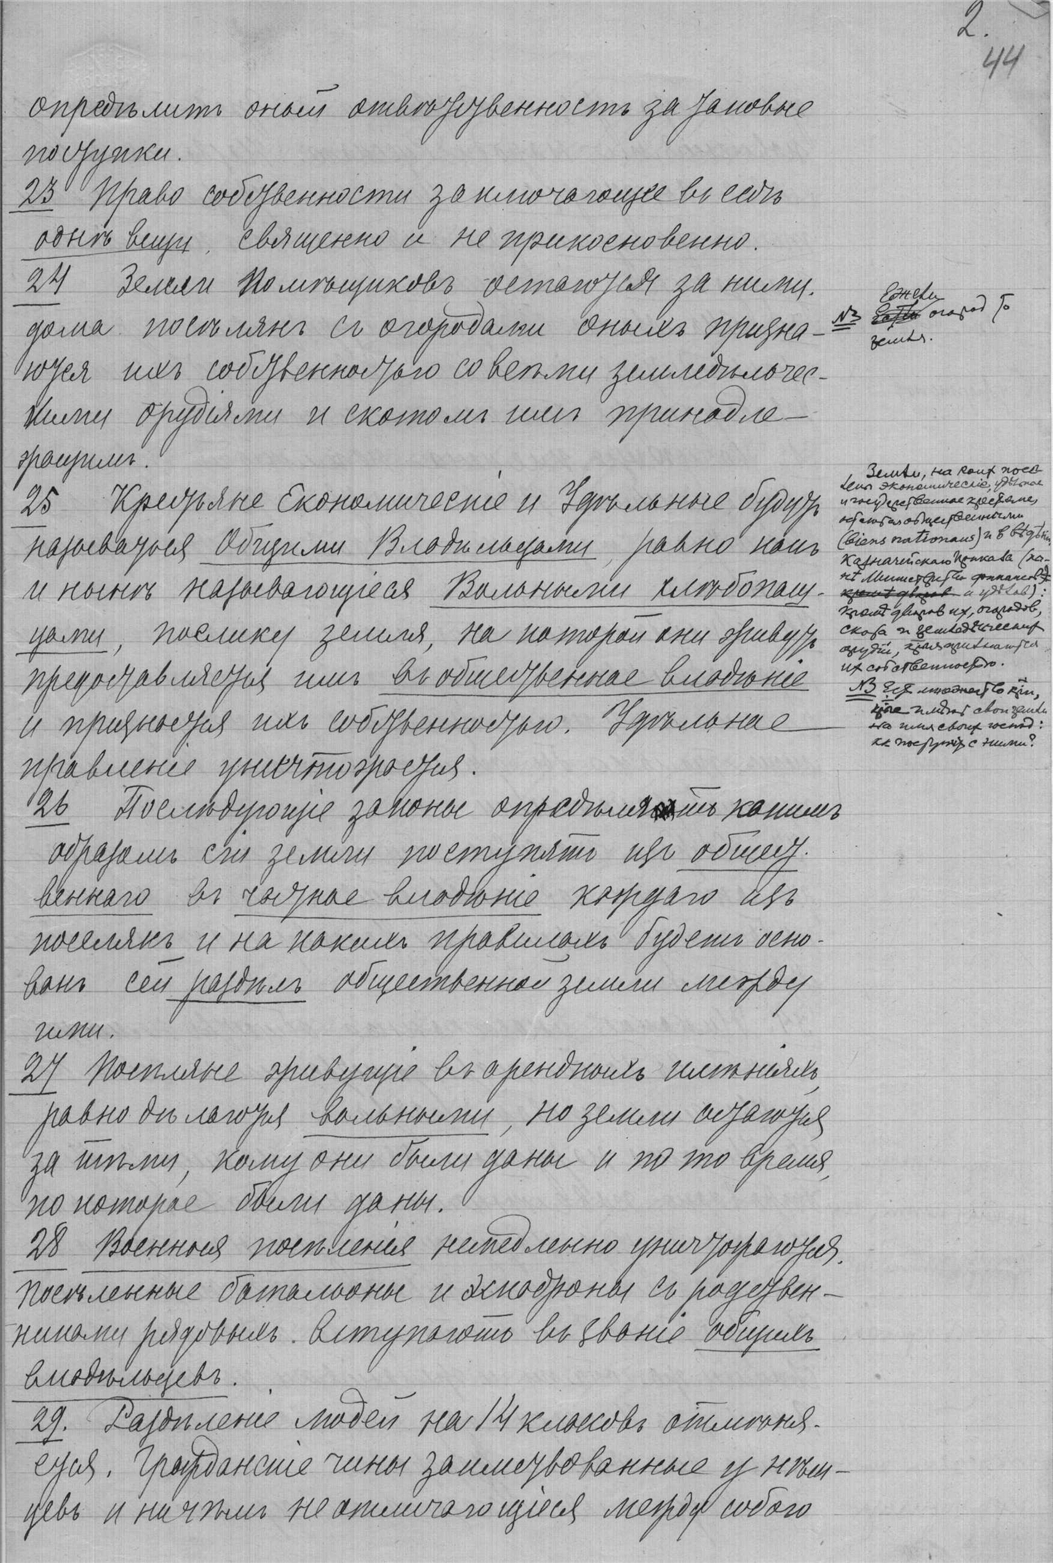 2.
44
опредѣлитъ оной отвѣтственность за таковые
поступки.
23 Право собственности заключающее въ себѣ
однѣ вещи, священно и неприкосновенно.
24 Земли помѣщиковъ остаются за ними.
дома поселянъ съ огородами оныхъ призна-
ются ихъ собственностью со всѣми земледѣльчес-
кими орудіями и скотомъ имъ принадле-
жащимъ.
25 Крестьяне Економическіе и Удѣльные будутъ
называться Общими Владѣльцами, равно какъ
и нынѣ называющіеся Вольными хлѣбопаш-
цами, поелику земля, на которой они живутъ
предоставляется имъ въ общественное владѣніе
и признается ихъ собственностью. Удѣльное
правленіе уничтожается.
26 Послѣдующіе законы опредѣлятъ какимъ
образомъ сіи земли поступятъ изъ общест-
веннаго въ частное владѣніе каждаго изъ
поселянъ и на какихъ правилахъ будетъ осно-
ванъ сей раздѣлъ общественной земли между
ими.
27 Поселяне живущіе въ арендныхъ имѣніяхъ,
равно дѣлаются вольными, но земли остаются
за тѣми, кому они были даны и по то время,
по которое были даны.
28 Военныя поселенія немедленно уничтожаются.
Поселенные баталіоны и эскадроны съ родствен-
никами рядовыхъ вступаютъ въ званіе общихъ
владѣльцевъ.
29. Раздѣленіе людей на 14 классовъ отмѣня-
ется. Гражданскіе чины заимствованные у нѣм-
цевъ и ничѣмъ не отличающіеся между собою
NB Ежели огород
земля.
Земли, на коих посе-
лены экономические, удѣльные
и государственные крестьяне,
общественными
(biens nationaux) и в вѣдѣніи
Казначейскаго Приказа
Министерства финансов
и удѣлов):
кромѣ дворов их, огородов,
скота и земледѣльческих
орудій,
их собственностью.
NB Есть множество
своих земли
на имя своих господ:
как поступить с ними?